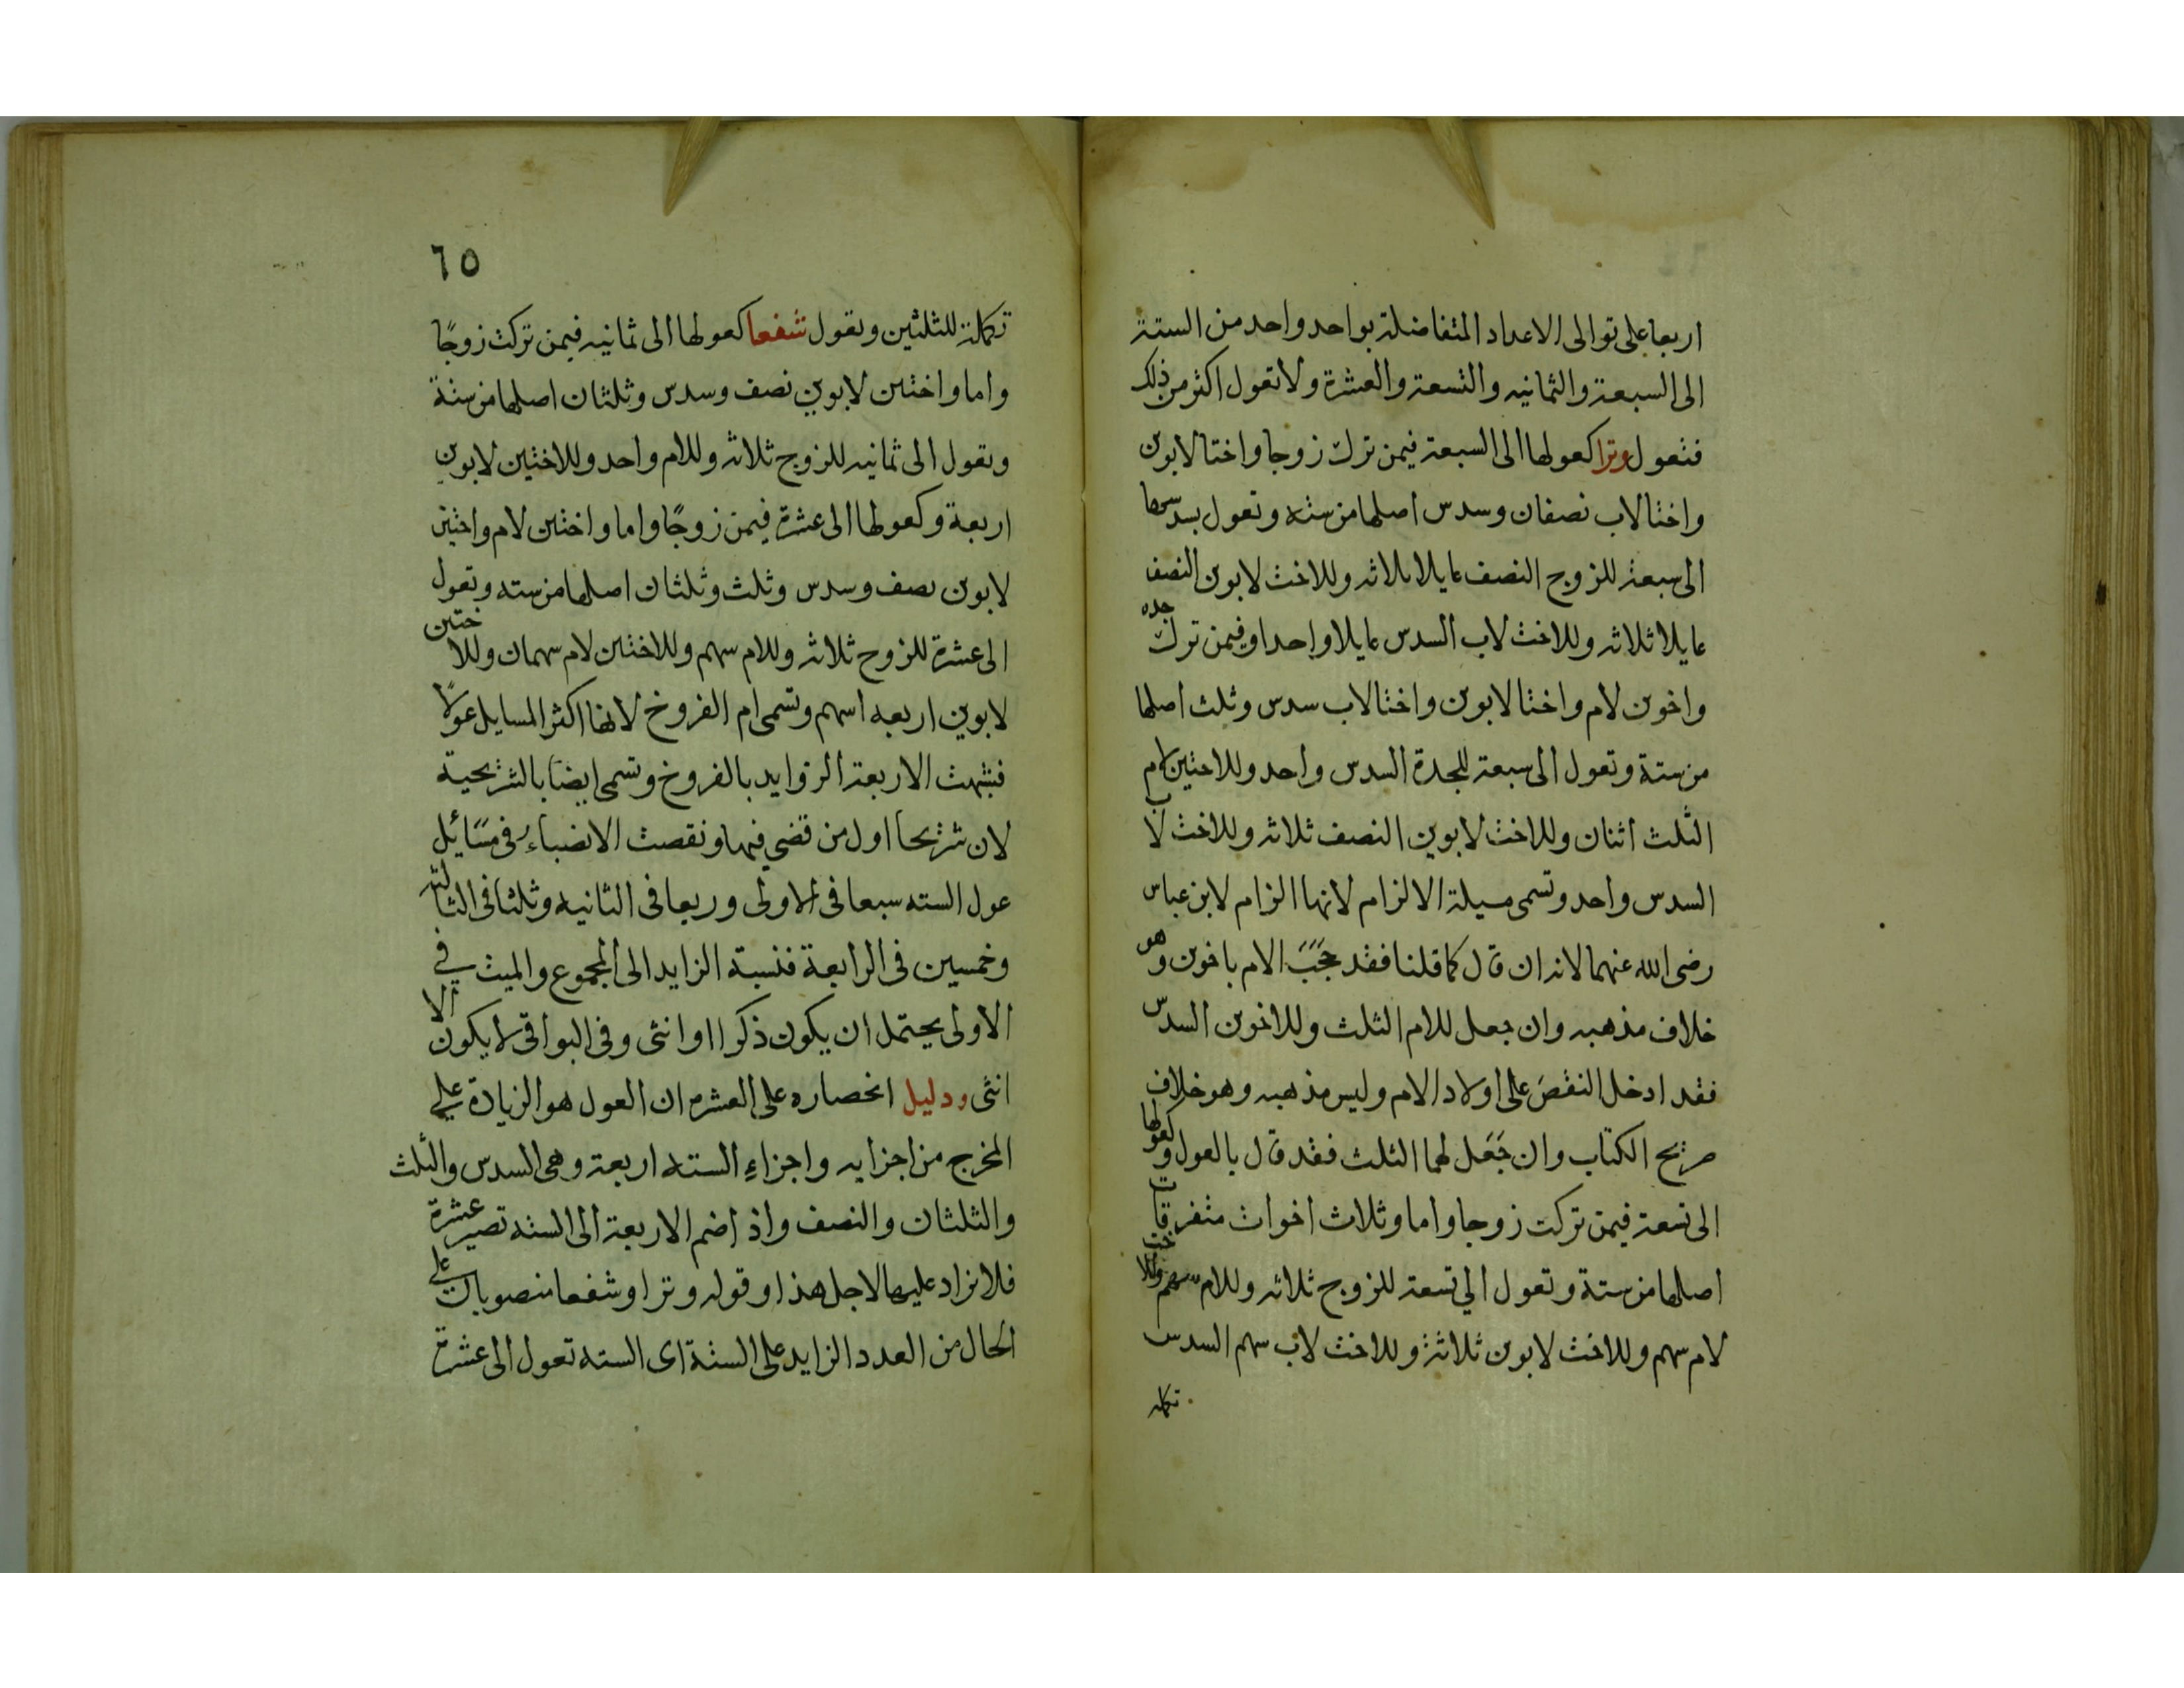 اربعا على توالى الاعداد المتفاضلة بواحد واحد من الستة
الى السبعة والثمانيه والتسعة والعشرة ولا تعول اكثر من ذلك
فتعول وترا كعولها الى السبعة فيمن ترك زوجا واختا لابوين
واختا لاب نصفان وسدس اصلها من سته وتعول بسدسها
الى سبعة للزوج النصف عايلا ثلاثه وللاخت لابوين النصف
عايلا ثلاثه وللاخت لاب السدس عايلا واحدا وفيمن ترك جده
واخوين لام واختا لابوين واختا لاب سدس وثلث اصلها
من ستة وتعول الى سبعة للجدة السدس واحد وللاختين لام
الثلث اثنان وللاخت لابوين النصف ثلاثه وللاخت لاب
السدس واحد وتسمى مسيلة الالزام لانها الزام لابن عباس
رضى الله عنهما لانه ان قال كما قلنا فقد حجب الام باخوين وهو
خلاف مذهبه وان جعل للام الثلث وللاخوين السدس
فقد ادخل النقص على اولاد الام وليس مذهبه وهو خلاف
صريح الكتاب وان جعل لهما الثلث فقد قال بالعول وكعولها
الى تسعة فيمن تركت زوجا واما وثلاث اخوات متفرقات
اصلها من ستة وتعول الى تسعة للزوج ثلاثه وللام سهم وللاخت
لام سهم وللاخت لابوين ثلاثة وللاخت لاب سهم السدس
تكمله
٦٥
تكملة للثلثين وتعول شفعا كعولها الى ثمانيه فيمن تركت زوجًا
واما واختين لابوين نصف وسدس وثلثان اصلها من ستة
وتعول الى ثمانيه للزوج ثلاثه وللام واحد وللاختين لابوين
اربعة وكعولها الى عشرة فيمن زوجًا واما واختين لام واختين
لابوين نصف وسدس وثلث وثلثان اصلها من سته وتعول
الى عشرة للزوج ثلاثه وللام سهم وللاختين لام سهمان وللاختين
لابوين اربعه اسهم وتسمى ام الفروخ لانها اكثر المسايل عولًا
فشبهت الاربعة الزوايد بالفروخ وتسمى ايضا بالشريحية
لان شريحا اول من قضي فيها ونقصت الانصباء فى مسائل
عول السته سبعا فى الاولى وربعا فى الثانيه وثلثا فى الثالثه
وخمسين فى الرابعة فنسبة الزايد الى المجموع والميت في
الاولى يحتمل ان يكون ذكرا او انثى وفى البواقى لا يكون الا
انثى ودليل انحصاره على العشره ان العول هو الزيادة على
المخرج من اجزايه واجزاء السته اربعة وهى السدس والثلث
والثلثان والنصف واذا ضم الاربعة الى السته تصير عشرة
فلا نزاد عليها لاجل هذا وقوله وترا وشفعا منصوبان على
الحال من العدد الزايد على الستة اى السته تعول الى عشرة